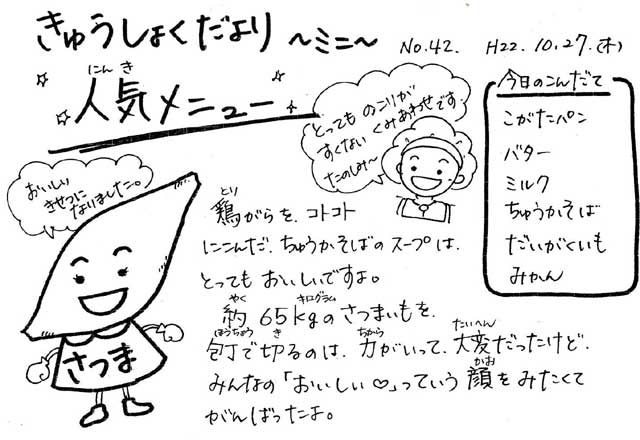 きゅうしょくだより ～ミニ～ No.42. H22.10.27.(木)
にんき
人気メニュー
とっても のこりが
すくない くみあわせです
たのしみ～
今日のこんだて
こがたパン
バター
ミルク
ちゅうかそば
だいがくいも
みかん
おいしい
きせつに
なりました。
さつま
とり
鶏がらを、コトコト
にこんだ、ちゅうかそばのスープは、
とっても おいしいですよ。
やく キログラム
約 65kgのさつまいもを、
ほうちょう き ちから たいへん
包丁で切るのは、力がいって、大変だったけど、
かお
みんなの「おいしい♡」っていう 顔をみたくて
がんばったよ。